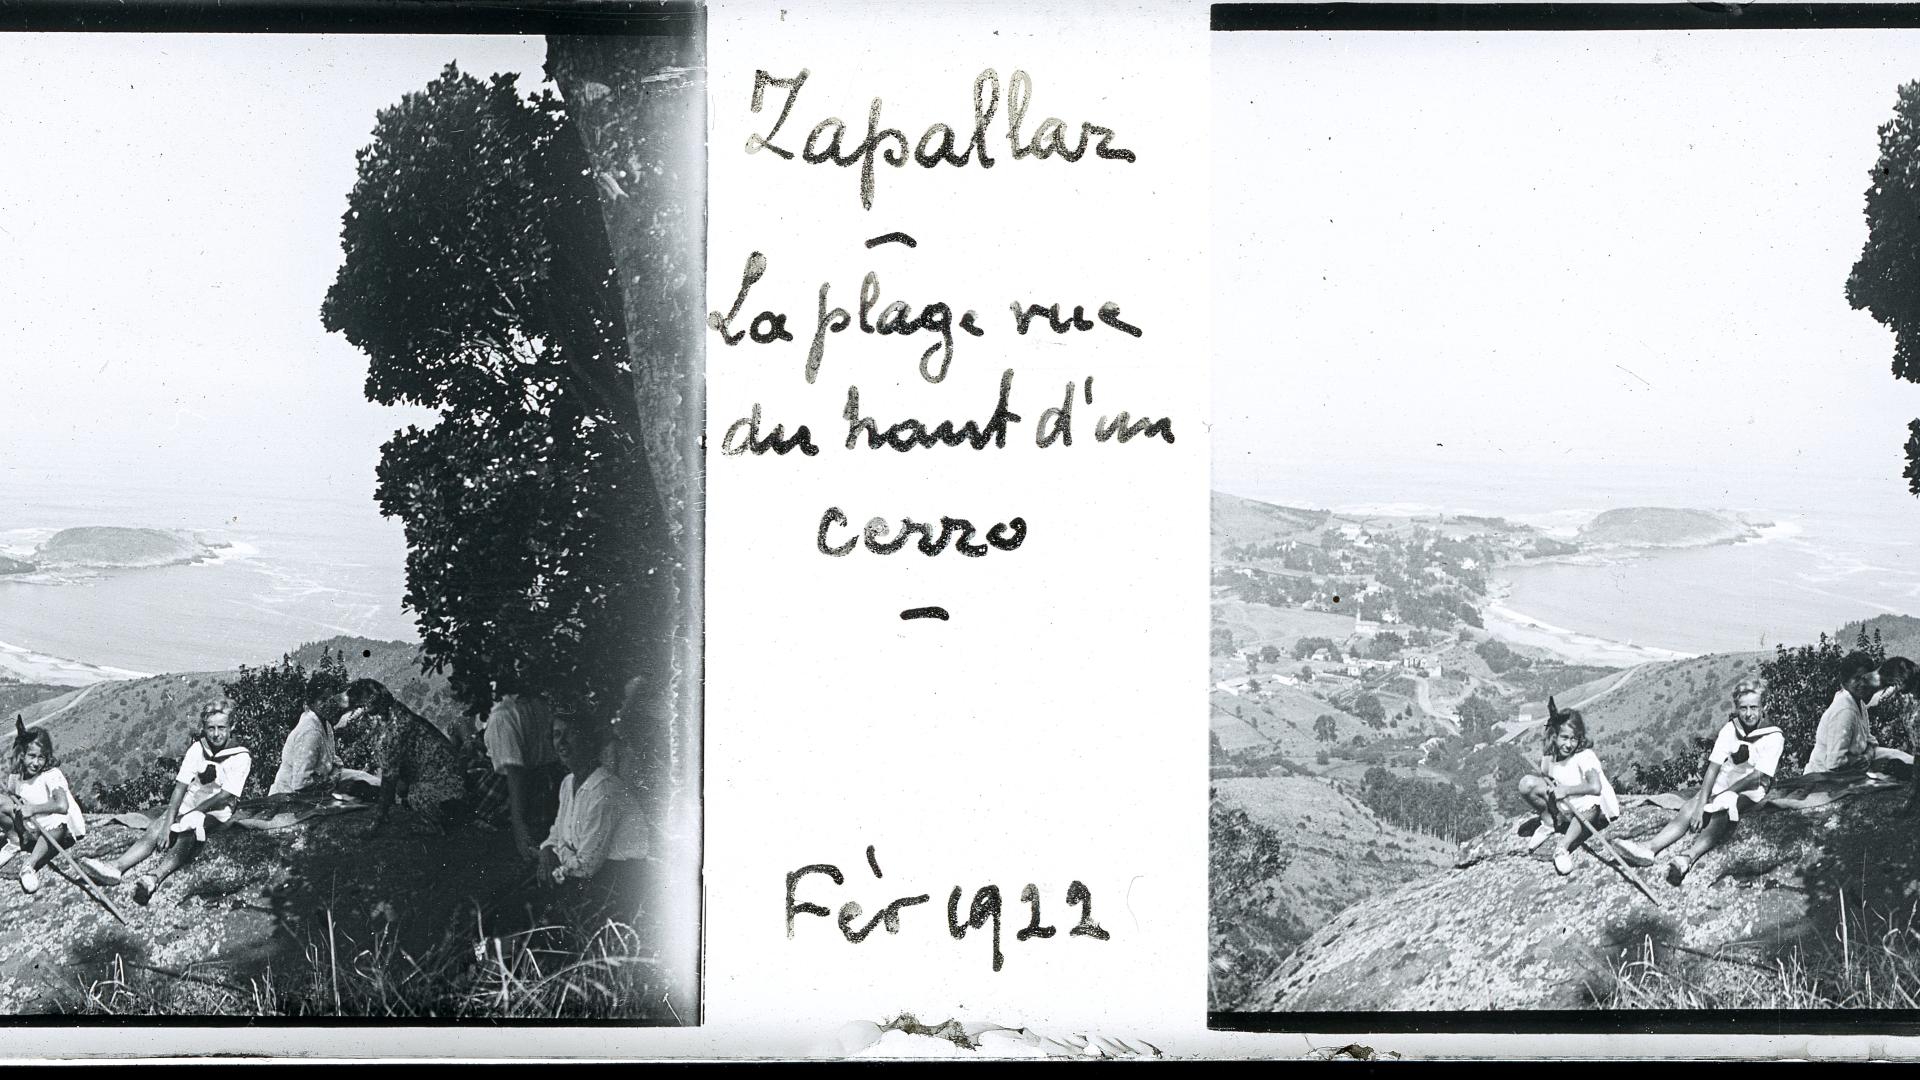 Zapallar
La plage vue
du haut d'un
cerro
Fèr 1922